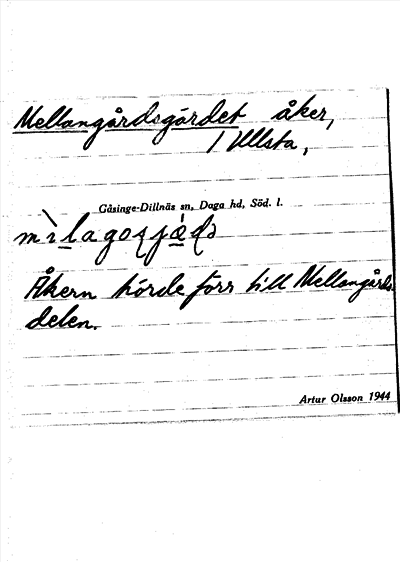 Mellangårdsgärdet åker,
/ Ullsta,
Gåsinge-Dillnäs sn, Daga hd, Söd. l.
Åkern hörde förr till Mellangårds
delen.
Artur Olsson 1944